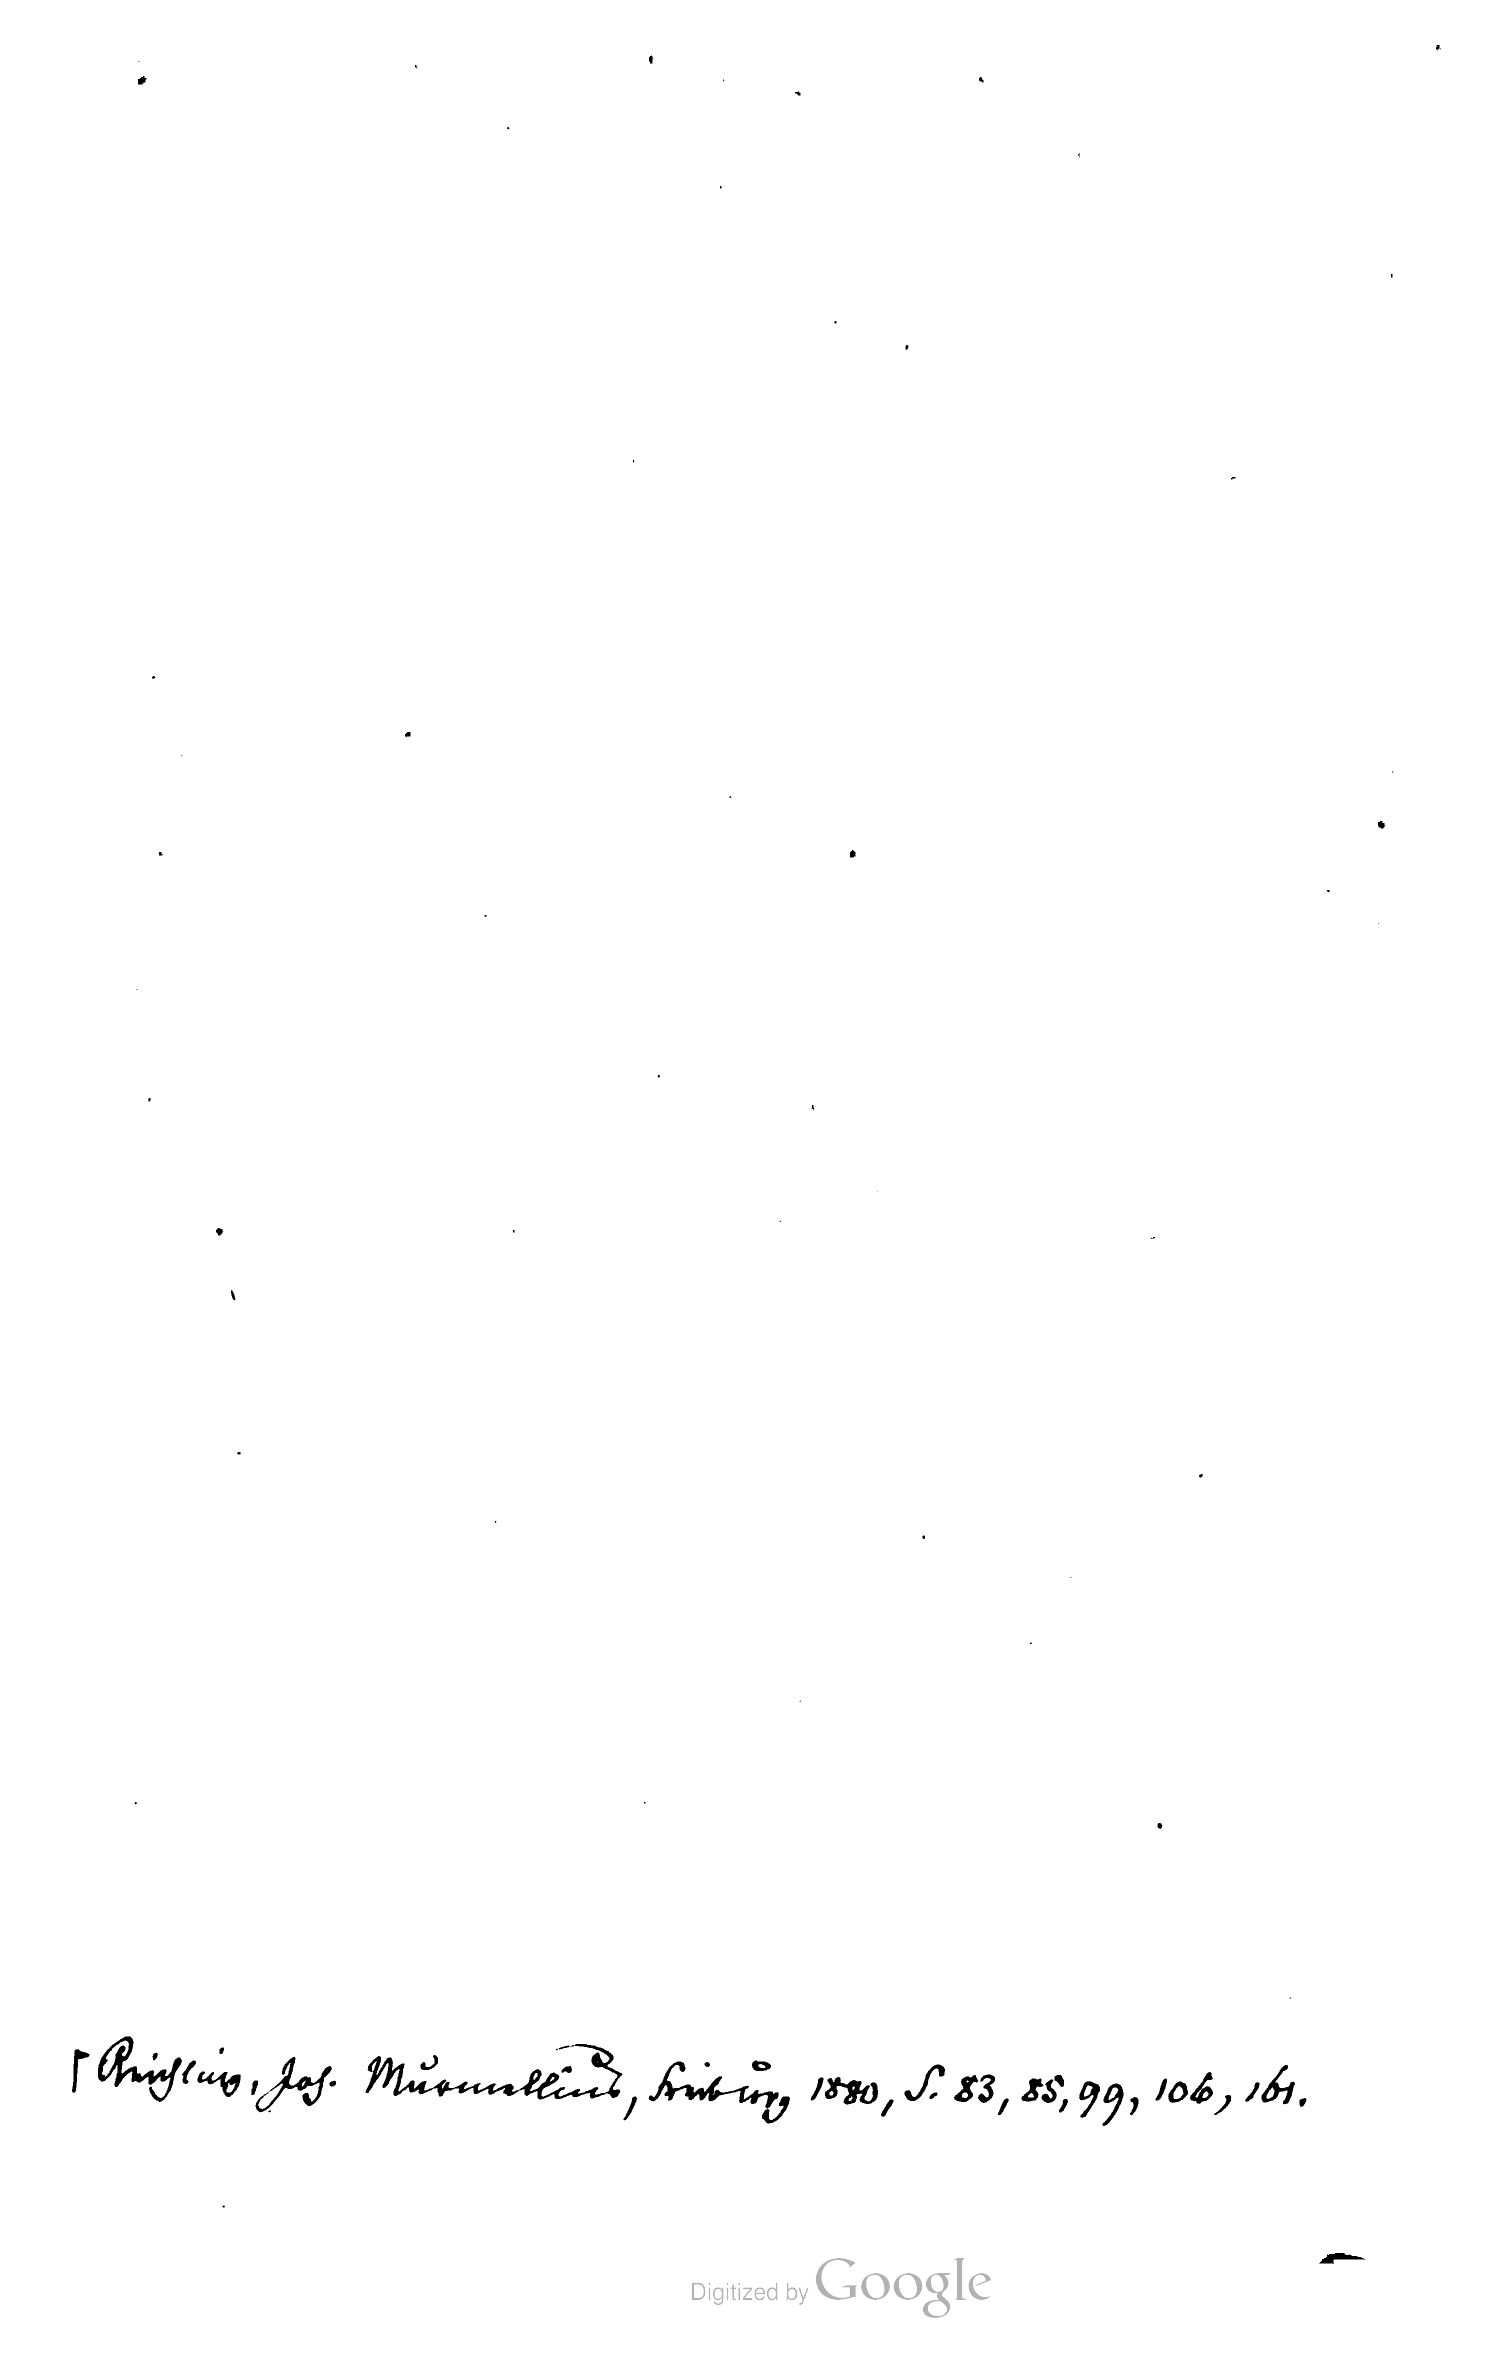 Reichling, Joh. Murmellius, Freiburg 1880, S. 83, 85, 99, 106, 161.
Digitized by Google